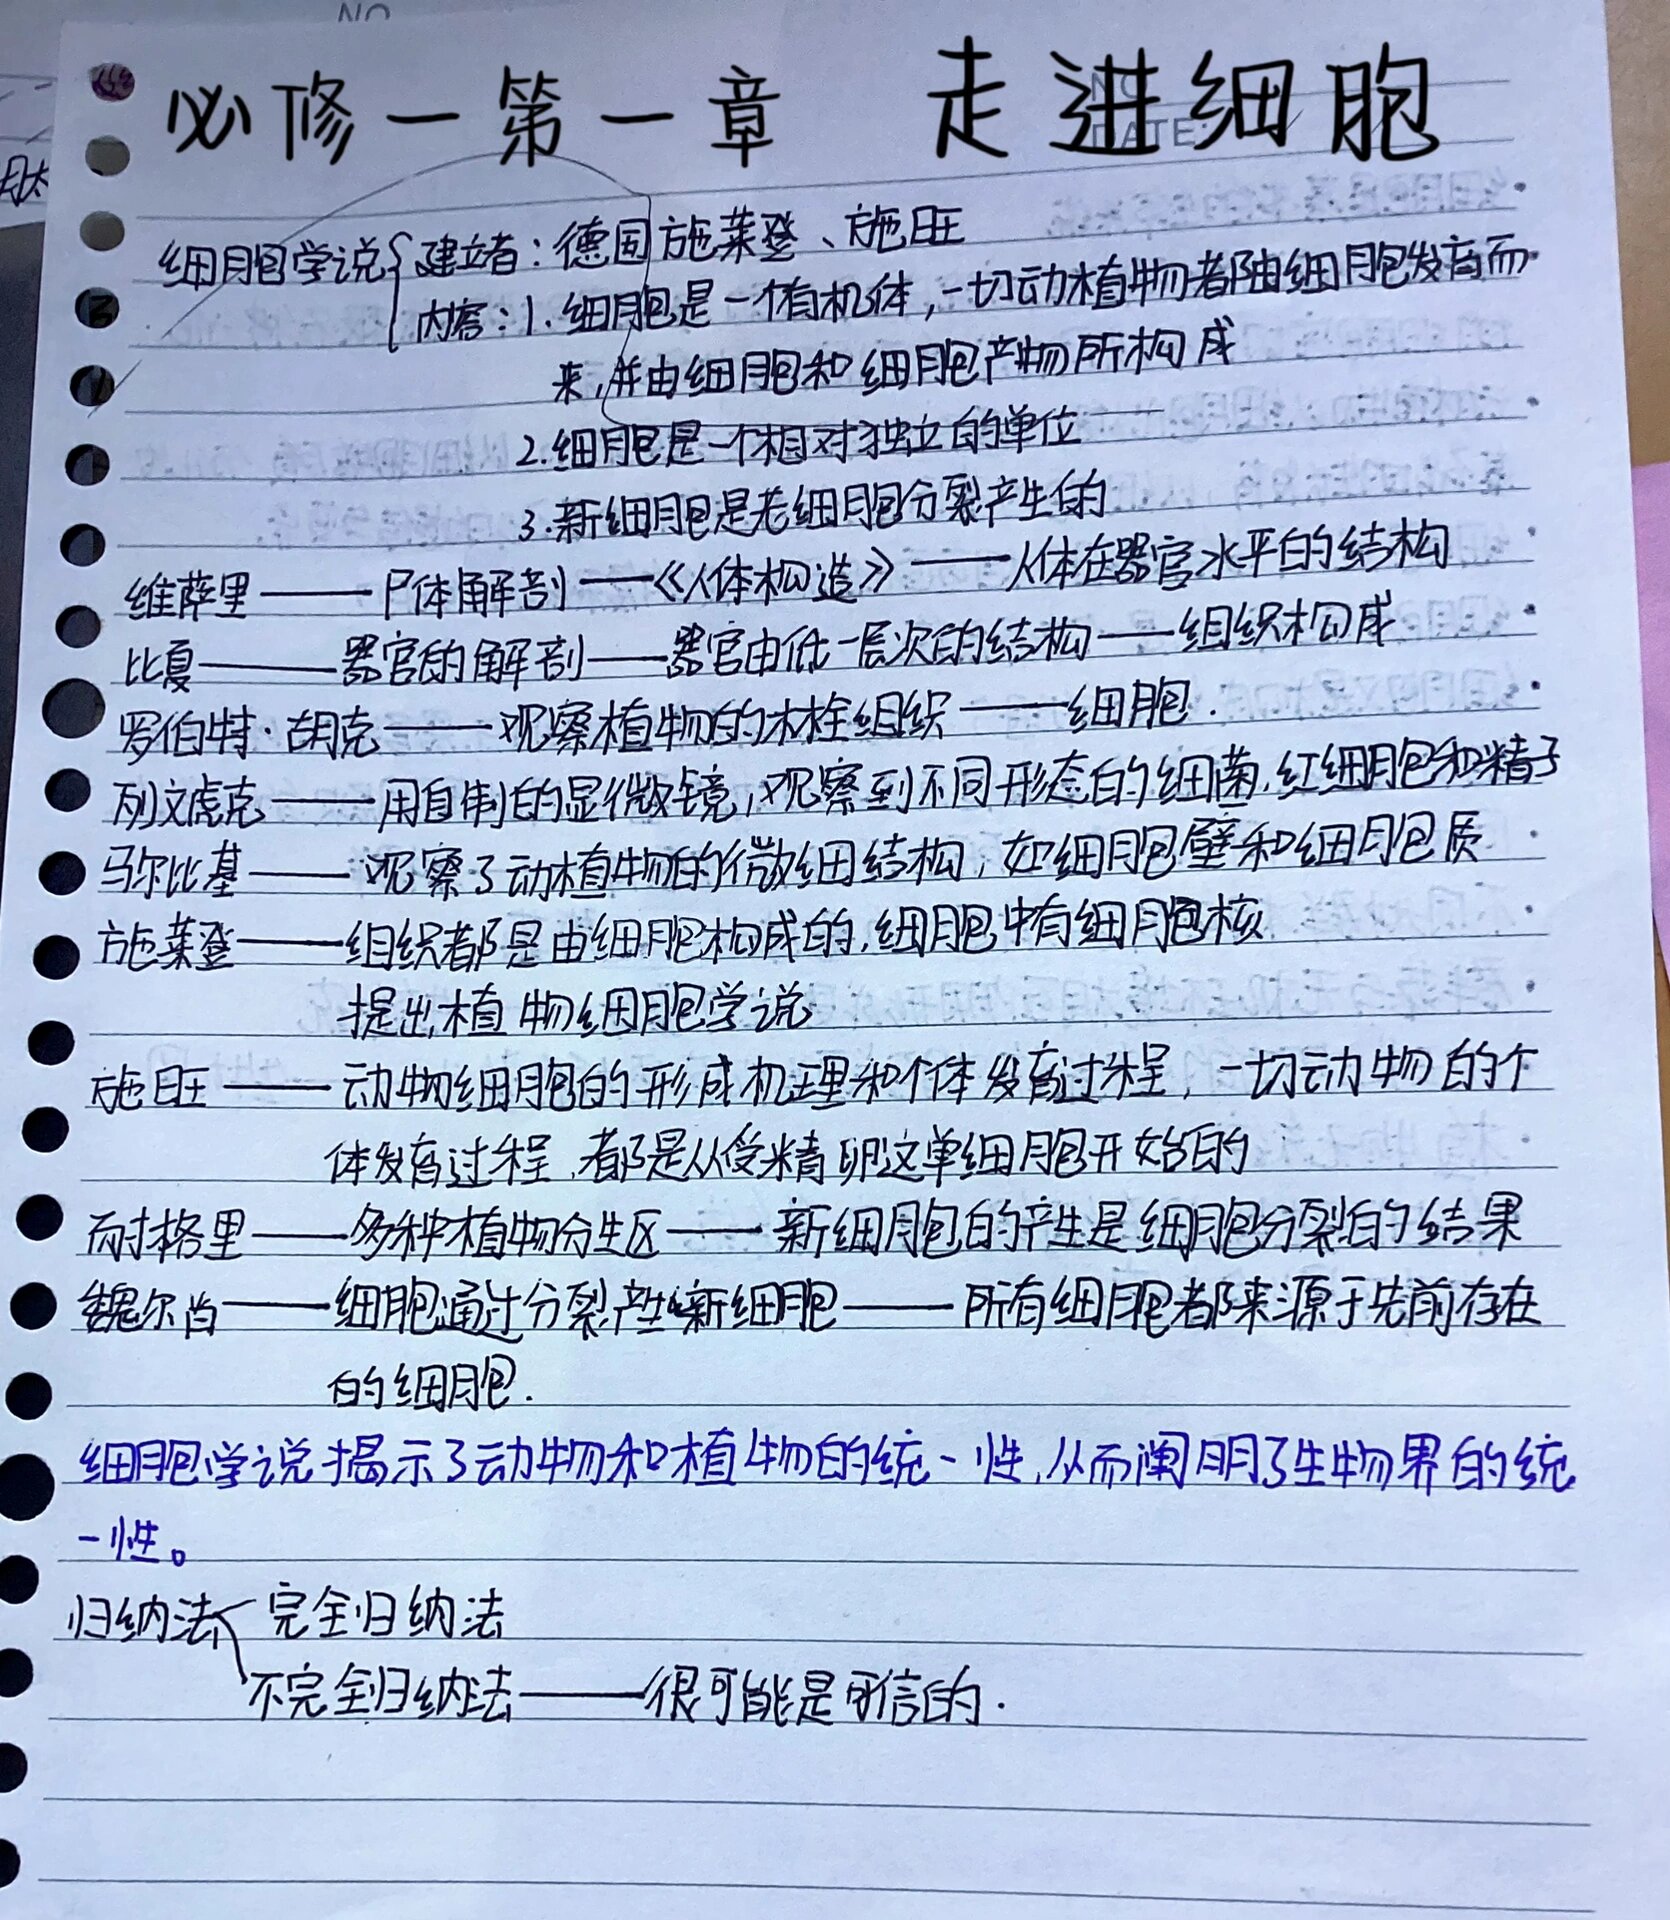 NO
必修一第一章 走进细胞
DATE:
肽
细胞学说 建立者：德国施莱登、施旺
内容：1. 细胞是一个有机体，一切动植物者都由细胞发育而
来，并由细胞和细胞产物所构成
2. 细胞是一个相对独立的单位
3. 新细胞是老细胞分裂产生的
维萨里——尸体解剖——《人体构造》——人体在器官水平的结构
比夏——器官的解剖——器官由低一层次的结构——组织构成
罗伯特·胡克——观察植物的木栓组织——细胞.
列文虎克——用自制的显微镜，观察到不同形态的细菌，红细胞和精子
马尔比基——观察了动植物的微细结构，如细胞壁和细胞质
施莱登——组织都是由细胞构成的，细胞中有细胞核
提出植物细胞学说
施旺——动物细胞的形成机理和个体发育过程，一切动物的个
体发育过程，都是从受精卵这单细胞开始的
耐格里——多种植物分生区——新细胞的产生是细胞分裂的结果
魏尔肖——细胞通过分裂产生新细胞——所有细胞都来源于先前存在
的细胞.
细胞学说揭示了动物和植物的统一性，从而阐明了生物界的统
一性。
归纳法 完全归纳法
不完全归纳法——很可能是可信的.